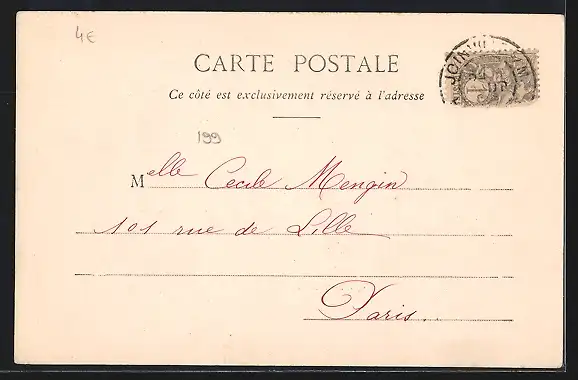 4€
CARTE POSTALE
Ce côté est exclusivement réservé à l'adresse
199
Melle Cecile Mengin
101 rue de Lille
Paris